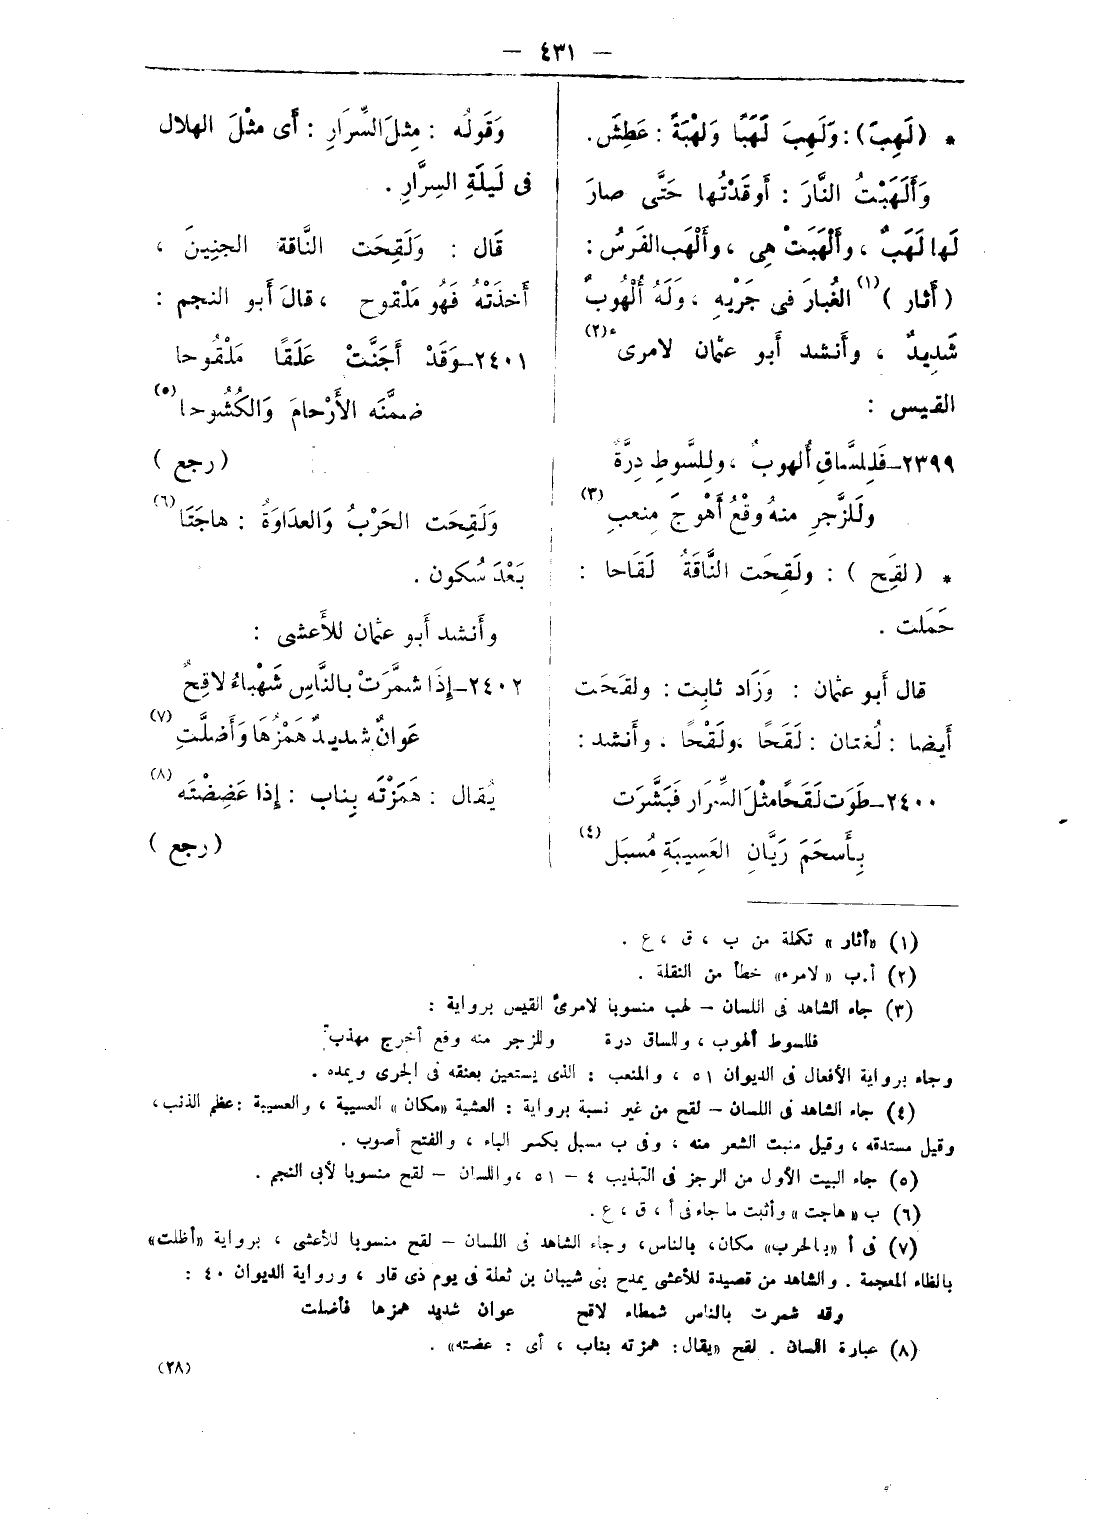 — ٤٣١ —
* (لَهِبَ): وَلَهِبَ لَهَبًا وَلهْبَةً : عَطِشَ.
وَأَلهَبْتُ النَّارَ : أَوقَدْتُها حَتَّى صارَ
لَها لَهَبٌ ، وأَلْهَبَتْ هِى ، وأَلْهَب الفَرسُ :
( أَثار ) (١) الغُبارَ فى جَرْيِهِ ، وَلَهُ أُلْهُوبٌ
شَدِيدٌ ، وأَنشد أَبو عثمان لامرىء (٢)
القيس :
٢٣٩٩ـ فَلِلسَّاقِ أُلهوبٌ ، ولِلسَّوطِ دِرَّةٌ
ولَلزَّجرِ منهُ وقْعُ أَهْوجَ مِنعبِ (٣)
* ( لقِح ) : ولَقِحَت النَّاقَةُ لَقَاحا :
حَمَلت .
قال أَبو عثمان : وَزَاد ثابِت : ولقَحَت
أَيضا : لُغتان : لَقَحًا ،ولَقْحًا . وأَنشد :
٢٤٠٠ـ طَوَت لَقَحًا مثْلَ السِّرَار فَبَشَّرَت
بِأَسحَمَ رَيَّانِ العَسِيبَةِ مُسبَل (٤)
وَقَولُه : مِثلَ السِّرَارِ : أَى مثْلَ الهلال
فى لَيلَةِ السِرَّارِ .
قَال : وَلَقِحَت النَّاقة الجنِينَ ،
أَخذَتْهُ فَهُو مَلْقوح ، قالَ أَبو النجم :
٢٤٠١ـ وَقَدْ أَجَنَّتْ عَلَقًا مَلْقُوحا
ضمَّنَه الأَرْحامَ وَالكُشُوحا (٥)
( رجع )
وَلَقِحَت الحَرْبُ وَالعدَاوَةُ : هاجَتَا (٦)
بَعْدَ سُكون .
وأَنشد أَبو عثمان للأَعشى :
٢٤٠٢ـ إِذَا شمَّرَتْ بالنَّاسِ شَهْباءُ لاقِحٌ
عَوانٌ شديدٌ هَمْزُهَا وَأَضلَّتِ (٧)
يُقال : هَمَزْتَه بِناب : إِذا عَضِضْتَه (٨)
( رجع )
(١) «أثار» تكملة من ب ، ق ، ع .
(٢) أ.ب «لامرء» خطأ من النقلة .
(٣) جاء الشاهد فى اللسان – لهب منسوبا لامرئ القيس برواية :
فللسوط ألهوب ، وللساق درة وللزجر منه وقع أخرج مهذب
وجاء برواية الأفعال فى الديوان ٥١ ، والمنعب : الذى يستعين بعنقه فى الجرى ويمده .
(٤) جاء الشاهد فى اللسان – لقح من غير نسبة برواية : العشية «مكان» العسيبة ، والعسيبة : عظم الذنب ،
وقيل مستدقه ، وقيل منبت الشعر منه ، وفى ب مسبل بكسر الباء ، والفتح أصوب .
(٥) جاء البيت الأول من الرجز فى التهذيب ٤ – ٥١ ، واللسان – لقح منسوبا لأبى النجم .
(٦) ب «هاجت» وأثبت ما جاء فى أ ، ق ، ع .
(٧) فى أ «بالحرب» مكان، بالناس، وجاء الشاهد فى اللسان – لقح منسوبا للأعشى ، برواية «أظلت»
بالظاء المعجمة . والشاهد من قصيدة للأعشى يمدح بنى شيبان بن ثعلة فى يوم ذى قار ، ورواية الديوان ٤٠ :
وقد شمرت بالناس شمطاء لاقح عوان شديد همزها فأضلت
(٨) عبارة اللسان . لقح «يقال: همزته بناب ، أى : عضته» .
(٢٨)